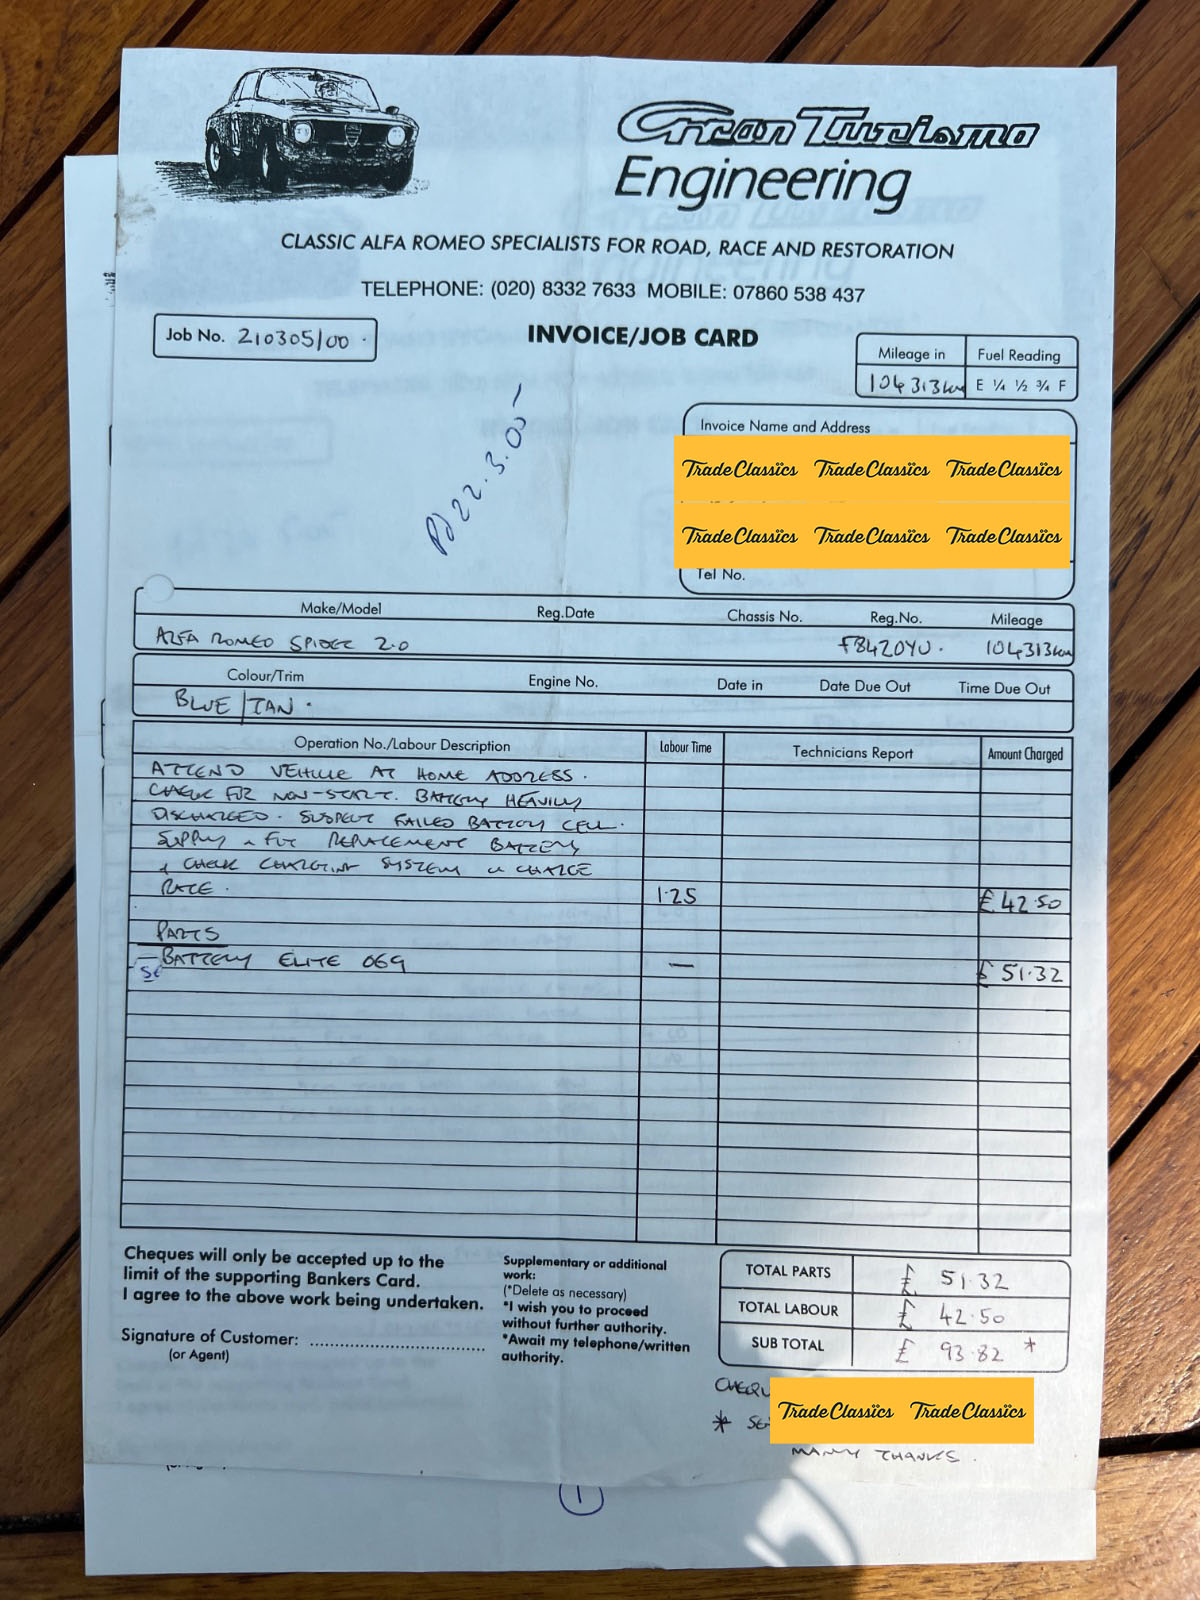 Gran Turismo
Engineering
CLASSIC ALFA ROMEO SPECIALISTS FOR ROAD, RACE AND RESTORATION
TELEPHONE: (020) 8332 7633 MOBILE: 07860 538 437
Job No. 210305/00
INVOICE/JOB CARD
Mileage in Fuel Reading
104313km E ¼ ½ ¾ F
Pd 22.3.00
Invoice Name and Address
Trade Classics Trade Classics Trade Classics
Trade Classics Trade Classics Trade Classics
Tel No.
Make/Model Reg.Date Chassis No. Reg.No. Mileage
ALFA ROMEO SPIDER 2.0 F842OYU. 104313km
Colour/Trim Engine No. Date in Date Due Out Time Due Out
BLUE/TAN.
Operation No./Labour Description Labour Time Technicians Report Amount Charged
ATTEND VEHICLE AT HOME ADDRESS.
CHECK FOR NON-START. BATTERY HEAVILY
DISCHARGED. SUSPECT FAILED BATTERY CELL.
SUPPLY & FIT REPLACEMENT BATTERY
& CHECK CHARGING SYSTEM & CHARGE
RATE. 1.25 £42.50
PARTS
BATTERY ELITE 069 — £51.32
Cheques will only be accepted up to the
limit of the supporting Bankers Card.
I agree to the above work being undertaken.
Signature of Customer:
(or Agent)
Supplementary or additional
work:
(*Delete as necessary)
*I wish you to proceed
without further authority.
*Await my telephone/written
authority.
TOTAL PARTS £ 51.32
TOTAL LABOUR £ 42.50
SUB TOTAL £ 93.82 *
Trade Classics Trade Classics
MANY THANKS.
1